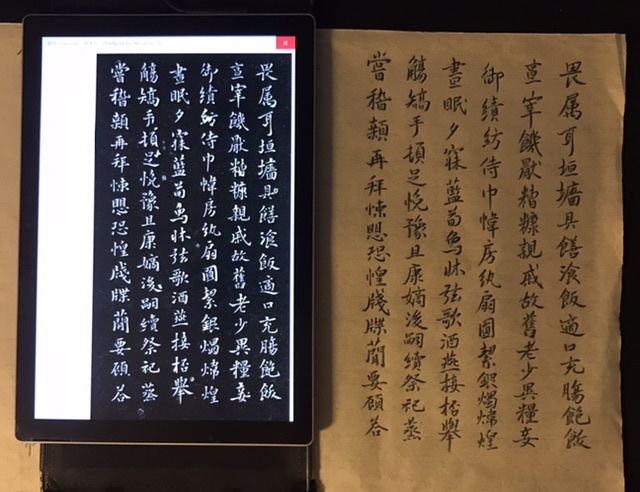 畏属耳垣墻具饍飡飯適口充腸飽飫
亯宰饑厭糟糠親戚故舊老少異糧妾
御績紡侍巾帷房紈扇圓絜銀燭煒煌
晝眠夕寐藍荀象牀弦歌酒燕接杯舉
觴矯手頓足悅豫且康嫡後嗣續祭祀蒸
嘗稽顙再拜悚愳恐惶牋牒簡要顧答
畏属耳垣墻具饍飡飯適口充腸飽飫
亯宰饑厭糟糠親戚故舊老少異糧妾
御績紡侍巾帷房紈扇圓絜銀燭煒煌
晝眠夕寐藍荀象牀弦歌酒燕接杯舉
觴矯手頓足悅豫且康嫡後嗣續祭祀蒸
嘗稽顙再拜悚愳恐惶牋牒簡要顧答